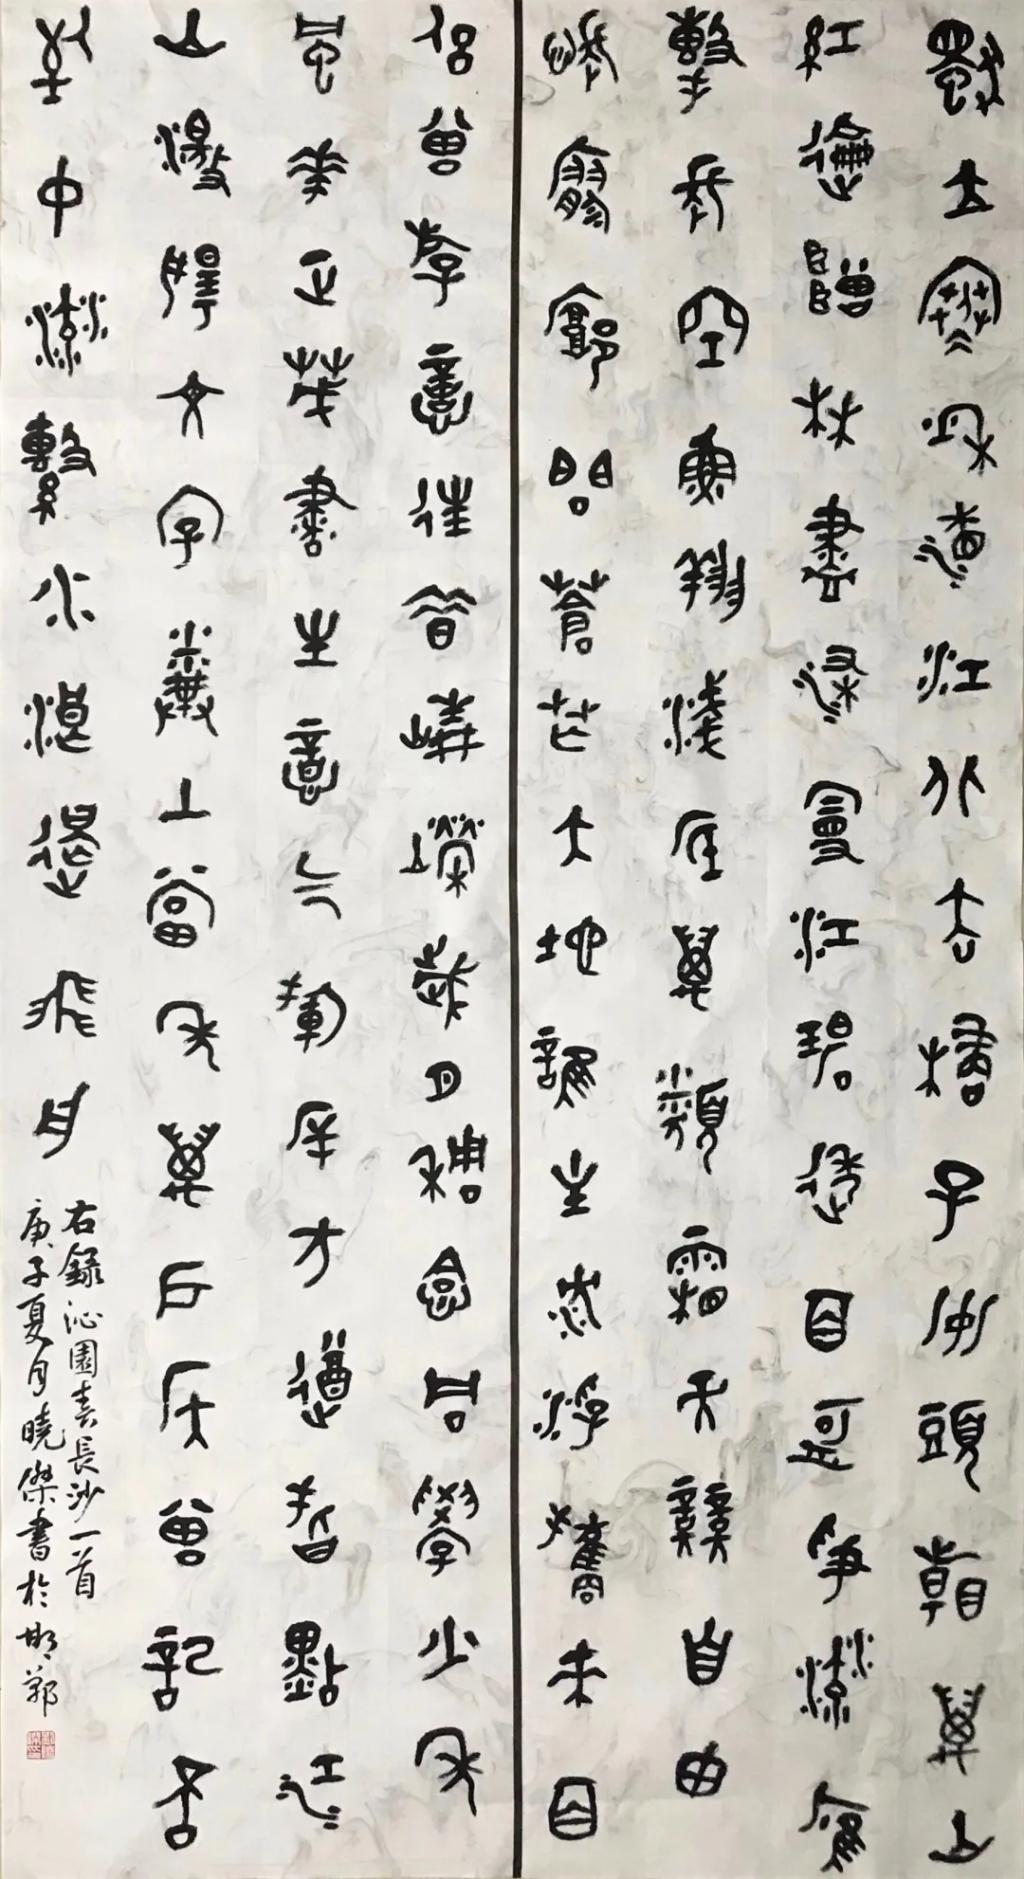 獨立寒秋湘江北去橘子洲頭看萬山
紅遍層林盡染漫江碧透百舸爭流鷹
擊長空魚翔淺底萬類霜天競自由
悵寥廓問蒼茫大地誰主沉浮攜來百
侶曾遊憶往昔崢嶸歲月稠恰同學少年
風華正茂書生意氣揮斥方遒指點江
山激揚文字糞土當年萬戶侯曾記否
到中流擊水浪遏飛舟
右錄沁園春長沙一首
庚子夏月曉傑書於邯鄲